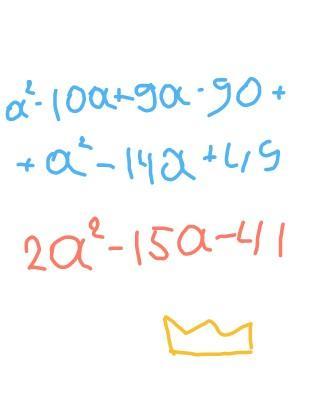 a²-10a+9a-90+
+a²-14a+49
2a²-15a-41